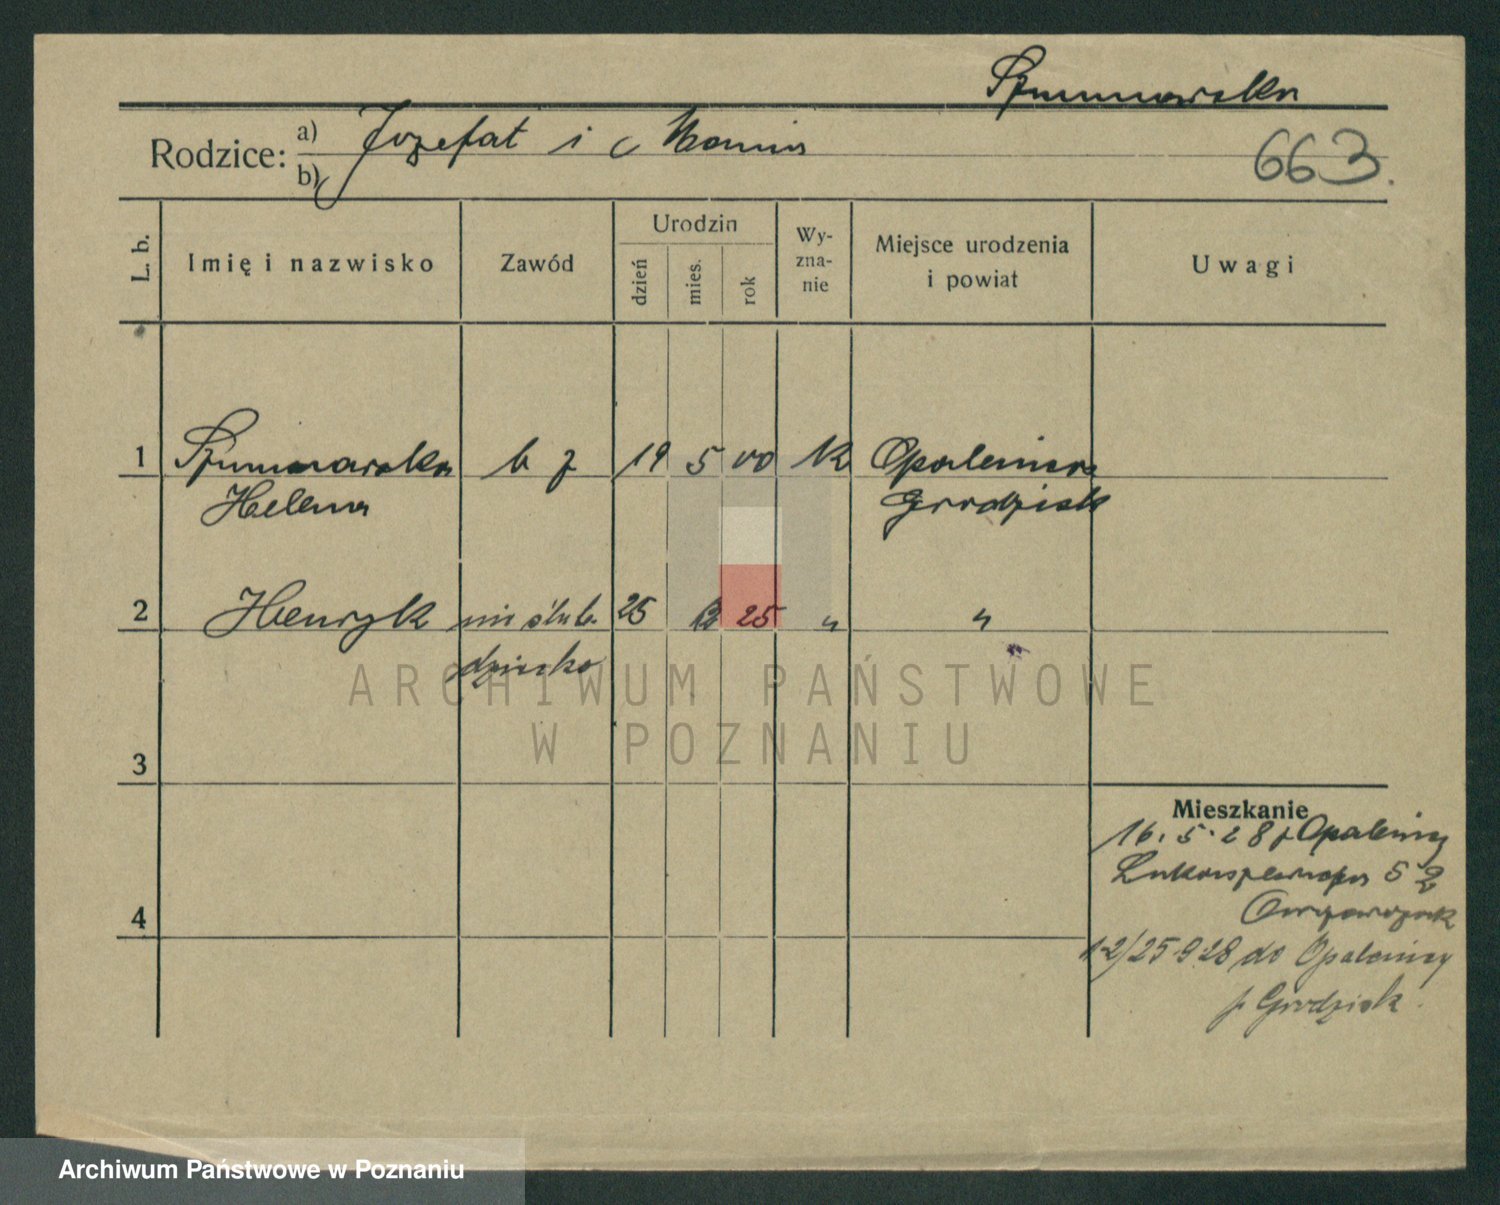 663.
Rodzice: a) Jozefat i Maria
b)
L. b.
Imię i nazwisko
Zawód
Urodzin
dzień
mies.
rok
Wy-
zna-
nie
Miejsce urodzenia
i powiat
Uwagi
1 b z 19 5 00 K Opalenica
Helena Grodzisk
2 Henryk nie ślub. 25 12 25 " "
dziecko
ARCHIWUM PAŃSTWOWE
W POZNANIU
3
Mieszkanie
16.5.28 z Opalenicy
4
1-2/25 9 28 do Opalenicy
p. Grodzisk.
Archiwum Państwowe w Poznaniu